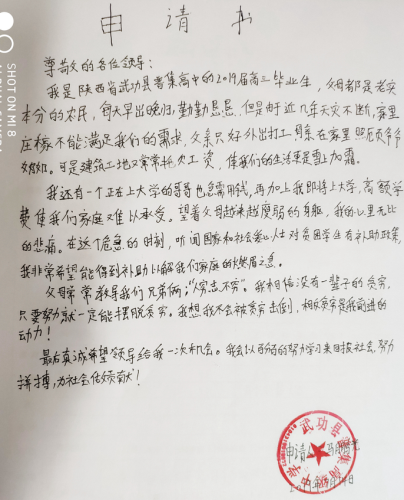 申请书
尊敬的各位领导：
我是陕西省武功县普集高中的2019届高三毕业生，父母都是老实
本分的农民，每天早出晚归，勤勤恳恳，但是由于近几年天灾不断，家里
庄稼不能满足我们的需求，父亲只好外出打工，母亲在家里照顾爷爷
奶奶。可是建筑工地又常常拖欠工资，使我们的生活更是雪上加霜。
我还有一个正在上大学的哥哥也急需用钱，再加上我即将上大学，高额学
费使我们家庭难以承受。望着父母越来越瘦弱的身躯，我的心里无比
的悲痛。在这个危急的时刻，听闻国家和社会爱心人士对贫困学生有补助政策，
我非常希望能得到补助以解我们家庭的燃眉之急。
父母常常教导我们兄弟俩：“人穷志不穷”。我相信没有一辈子的贫穷，
只要努力就一定能摆脱贫穷。我想我不会被贫穷击倒，相反贫穷是我前进的
动力！
最后真诚希望领导给我一次机会。我会以百分百的努力学习来回报社会，努力
拼搏，为社会做贡献！
申请人
武功县普集高级中学
SHOT ON MI 8